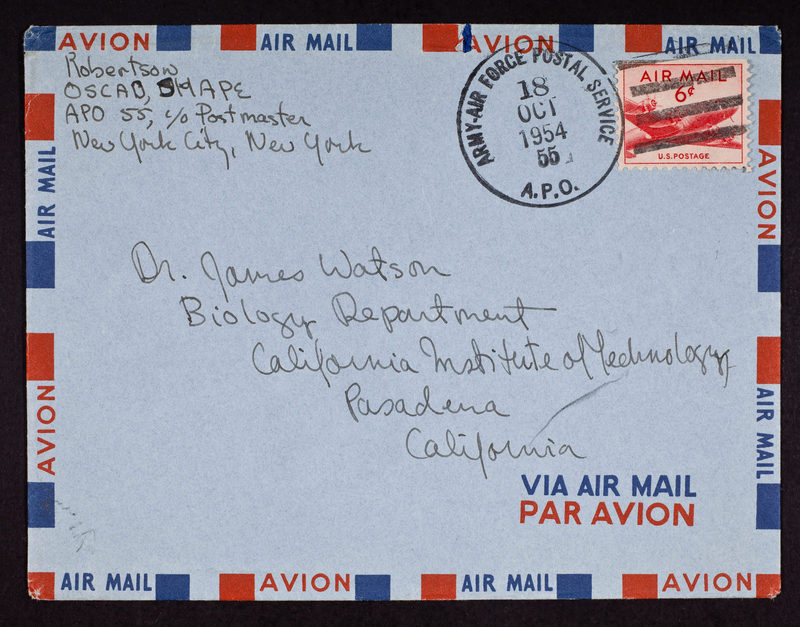 AVION AIR MAIL AVION AIR MAIL
Robertson
OSCAD, SHAPE
APO 55, c/o Postmaster
New York City, New York
ARMY-AIR FORCE POSTAL SERVICE
18
OCT
1954
55
A.P.O.
AIR MAIL
6¢
U.S. POSTAGE
AIR MAIL
AVION
Dr. James Watson
Biology Department
California Institute of Technology
Pasadena
California
AVION
AIR MAIL
VIA AIR MAIL
PAR AVION
AIR MAIL AVION AIR MAIL AVION